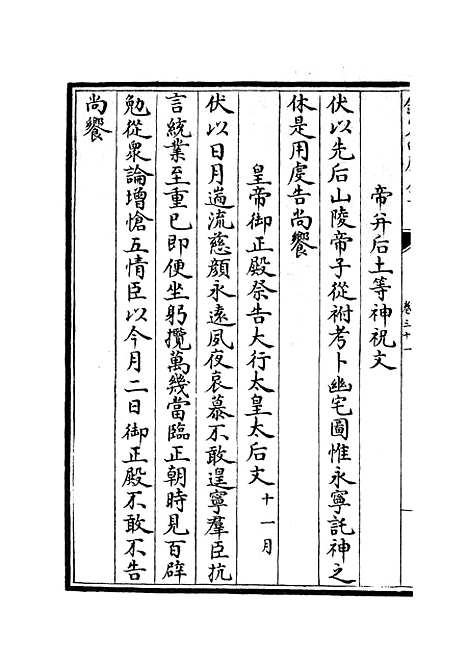 卷三十一
帝并后土等神祝文
伏以先后山陵帝子從祔考卜幽宅圖惟永寧託神之
休是用虔告尚饗
皇帝御正殿祭告大行太皇太后文十一月
伏以日月遄流慈顔永遠夙夜哀慕不敢遑寧羣臣抗
言統業至重已即便坐躬攬萬幾當臨正朝時見百辟
勉從衆論增愴五情臣以今月二日御正殿不敢不告
尚饗